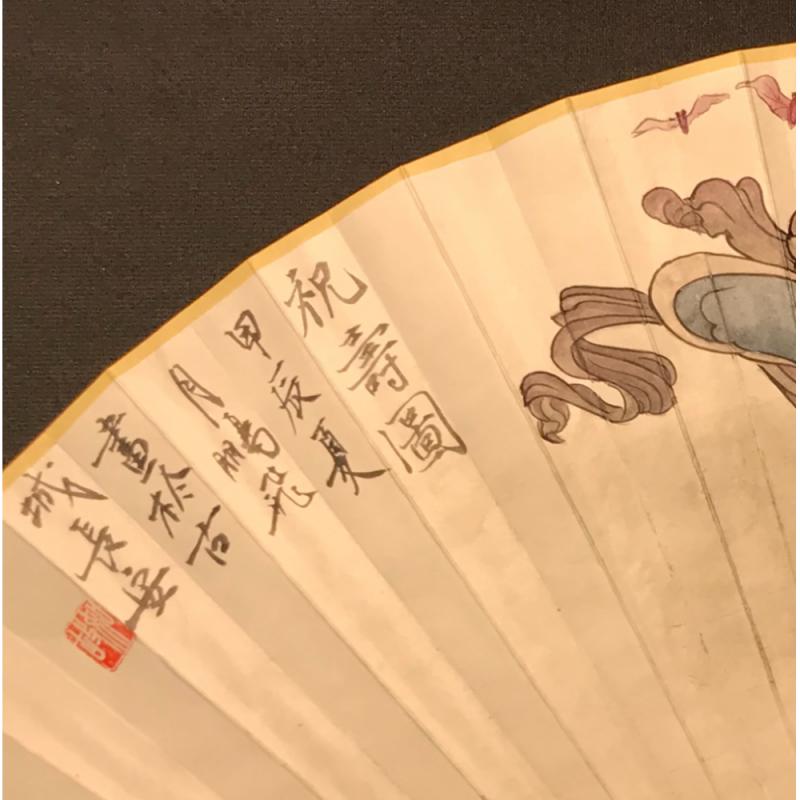 祝壽圖
甲辰夏
月鵬飛
畫於古
城長安